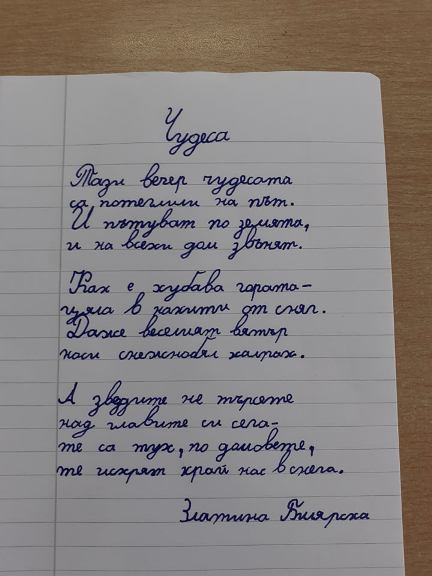 Чудеса
Тази вечер чудесата
са потеглили на път.
И пътуват по земята,
и на всеки дом звънят.
Как е хубава гората-
цяла в накити от сняг.
Даже веселият вятър
носи снежнобял калпак.
А звездите не търсете
над главите си сега-
те са тук, по домовете,
те искрят край нас в снега.
Златина Билярска